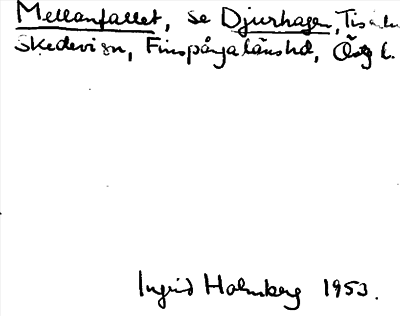 Mellanfallet, se Djurhagen,
Skedevi sn, Finspånga länshd, Östg l.
Ingrid Holmberg 1953.